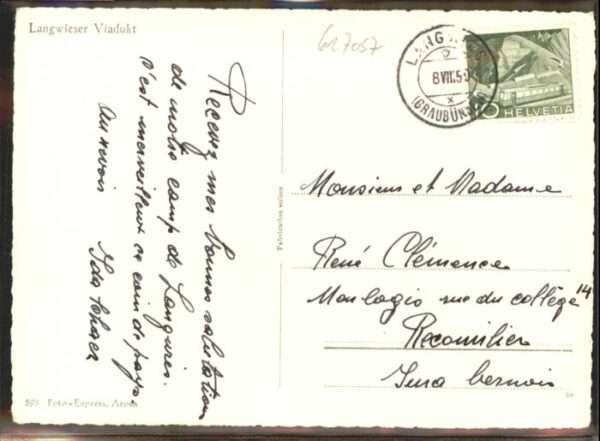 Langwieser Viadukt
Recevez mes bonnes salutation
de notre camp de Langwies.
C'est merveilleux ce coin de pays
Au revoir
Ida
593 Foto-Express, Arosa
Fabrication suisse
LANGWIES
8.VII.5
(GRAUBÜNDEN)
HELVETIA
Monsieur et Madame
René Clémence
Horlogis rue du collège 14
Reconvilier
Jura bernois